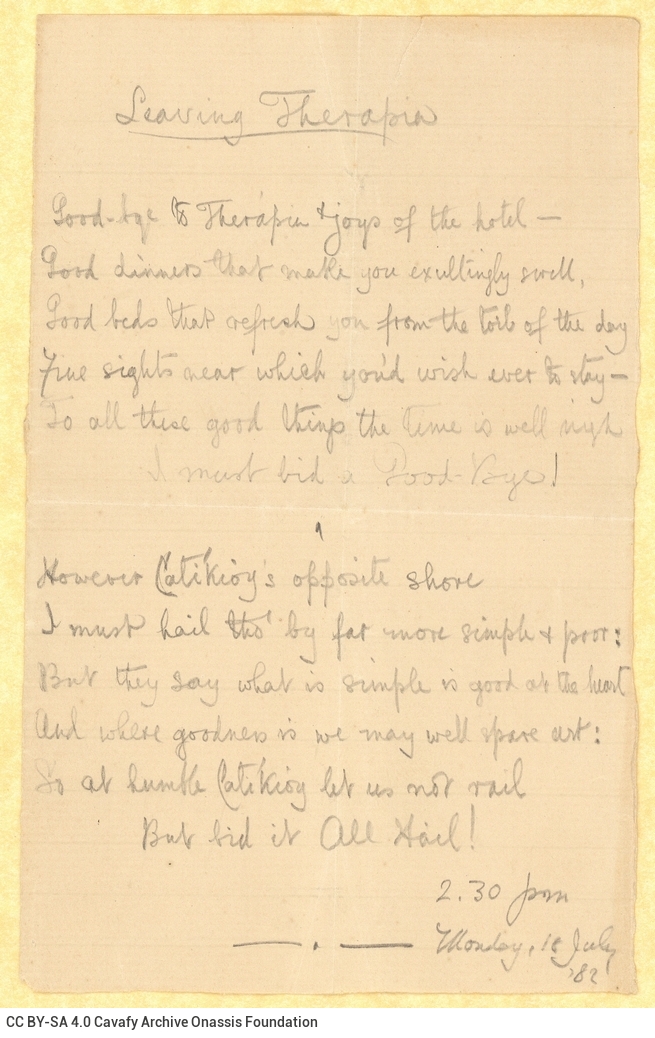 Leaving Therapia
Good-bye to Therápia & joys of the hotel —
Good dinners that make you exultingly swell,
Good beds that refresh you from the toil of the day
Fine sights near which you'd wish ever to stay —
To all these good things the time is well nigh
I must bid a Good-Bye!
However Catikioy's opposite shore
I must hail tho' by far more simple & poor:
But they say what is simple is good at the heart
And where goodness is we may well spare art:
So at humble Catikioy let us not rail
But bid it All Hail!
2.30 pm
Monday, 18 July,
'82
CC BY-SA 4.0 Cavafy Archive Onassis Foundation